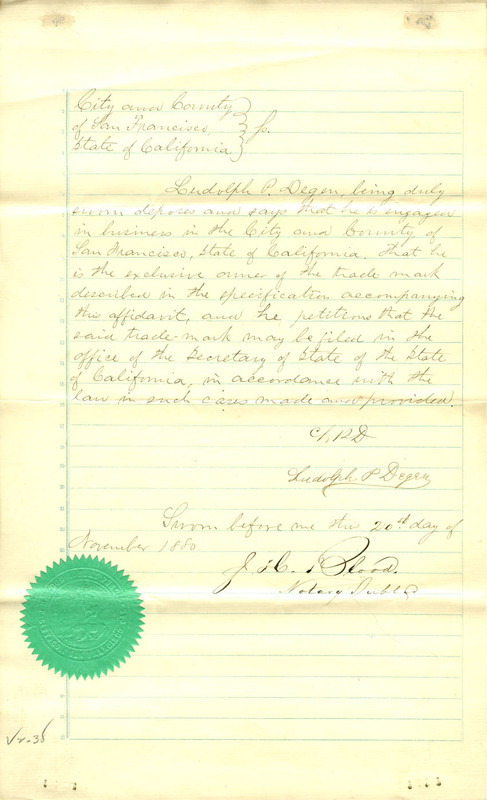 City and County
of San Francisco, ss.
State of California
Ludolph P. Degen, being duly
sworn deposes and says that he is engaged
in business in the City and County of
San Francisco, State of California. That he
is the exclusive owner of the trade mark
described in the specification accompanying
this affidavit, and he petitions that the
said trade-mark may be filed in the
office of the Secretary of State of the State
of California, in accordance with the
law in such cases made and provided.
Ludolph P Degen
Sworn before me this 20th day of
November 1880
Blood.
Notary Public